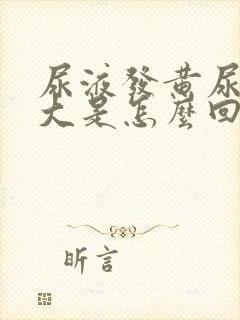 尿液發黃尿
大是怎麼回
昕言